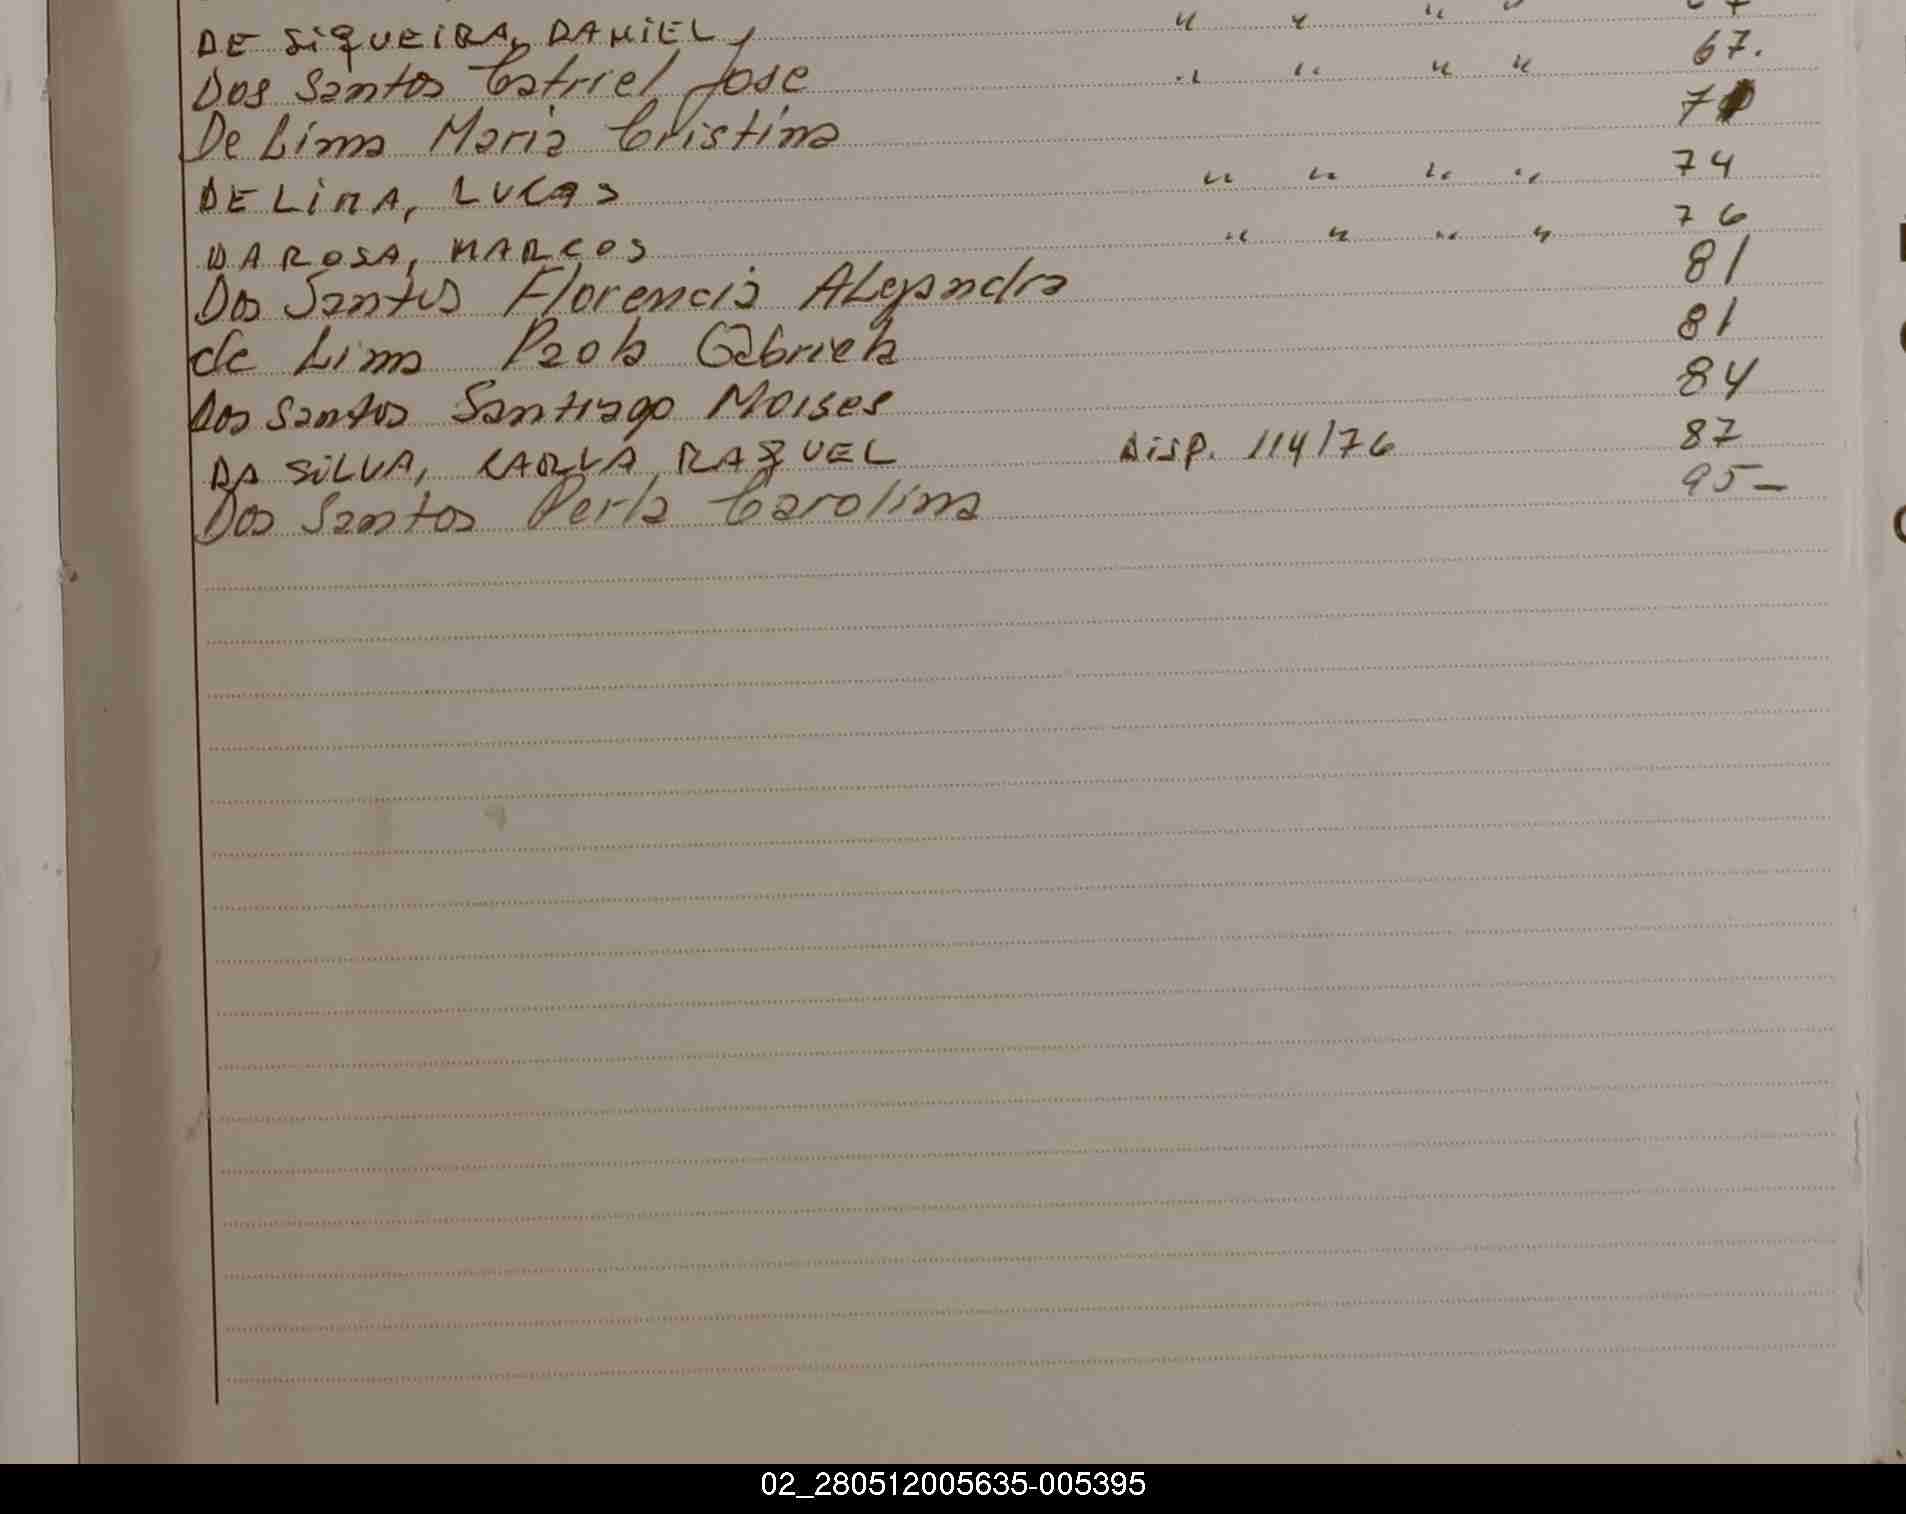 DE SiQUEiRA, DANiEL " " " "
Dos Santos Catriel Jose " " " " 67.
De Lima Maria Cristina 71
DE LiMA, LUCAS " " " " 74
DA ROSA, MARCOS " " " " 76
Dos Santos Florencia Alejandra 81
de Lima Paola Gabriela 81
Dos Santos Santiago Moises 84
DA SiLVA, CARLA RAQUEL DisP. 114/76 87
Dos Santos Perla Carolina 95-
02_280512005635-005395